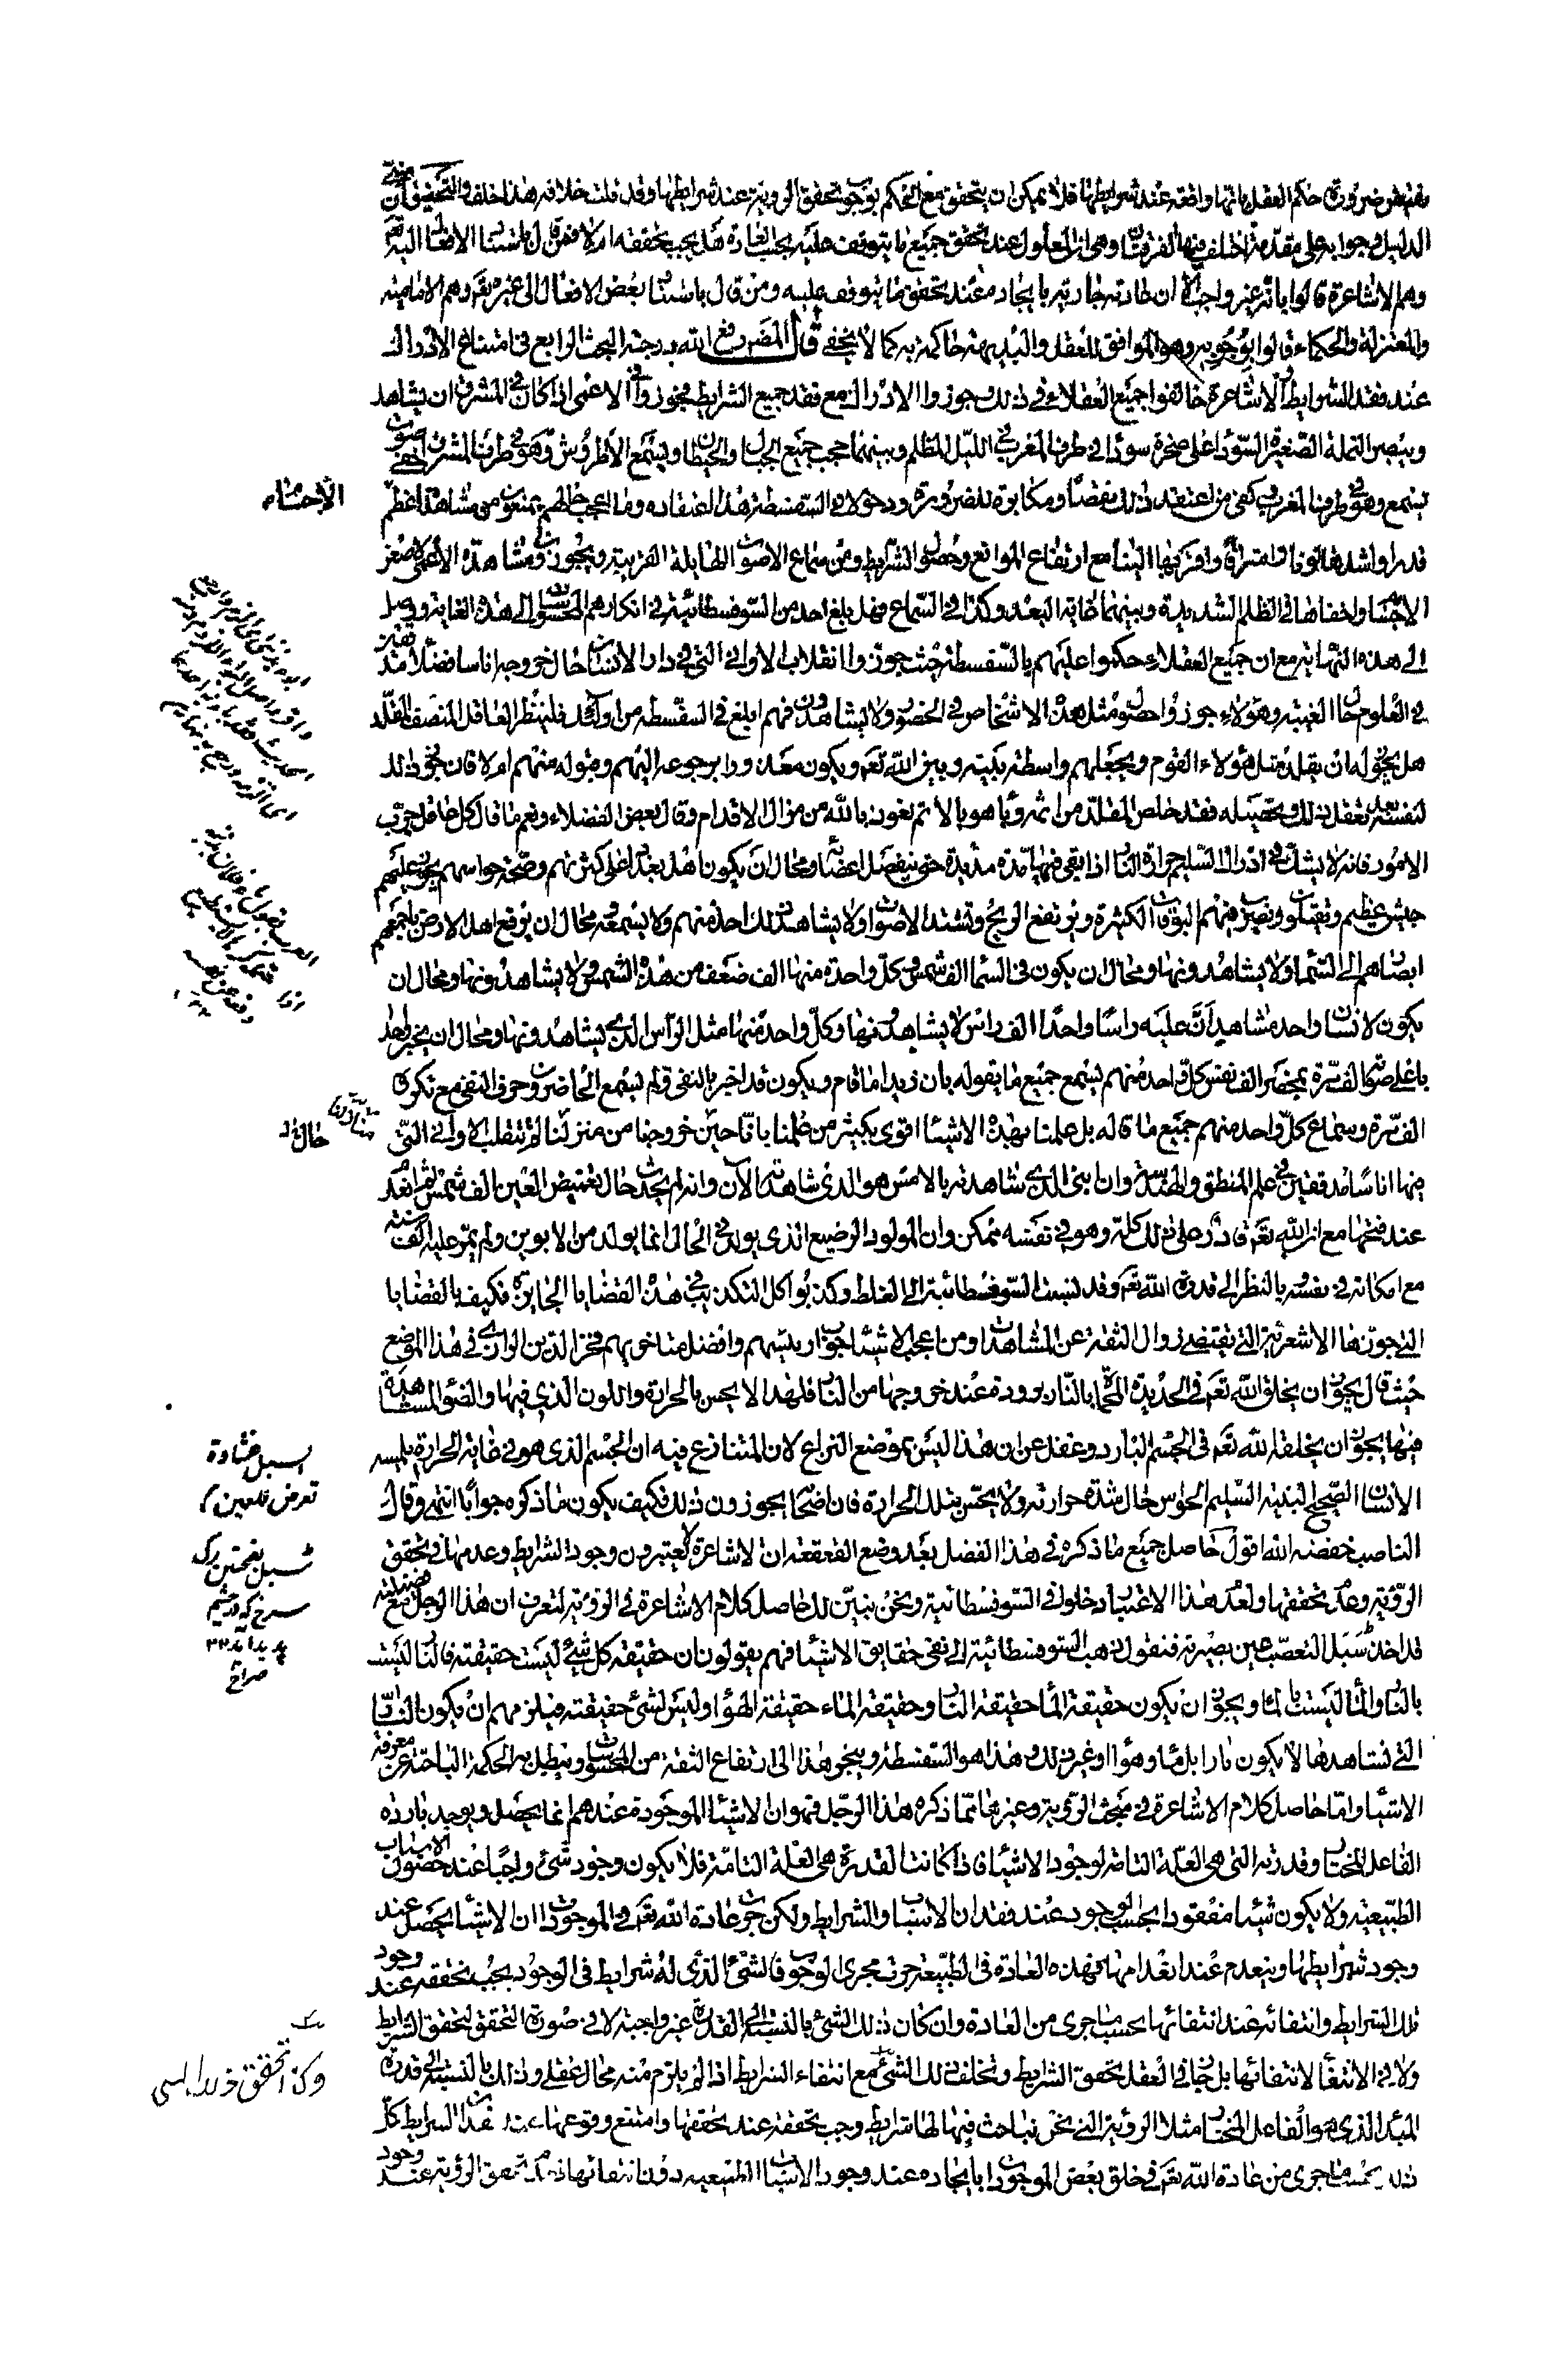 يقتضى ضرورة حكم العقل بانها واقعة عند شرايطها فلا يمكن ان يتحقق مع الحكم بوجوب تحقق الروية عند شرايطها وقد قلت خلافه هذا خلف والتحقيق ان مبنى
الدليل وجوابه على مقدمة اختلف فيها الفريقان وهى ان المعلول عند تحقق جميع ما يتوقف عليه بحسب العادة هل يجب تحققه ام لا فمن قال باستناد الافعال اليه تعم
وهم الاشاعرة قالوا بانه غير واجب الا ان عادته جارية بايجاده عند تحقق ما يتوقف عليه ومن قال باستناد بعض الافعال الى غيره تعم وهم الامامية
والمعتزلة والحكماء قالوا بوجوبه وهو الموافق للعقل والبديهة حاكمة به كما لا يخفى قال المصنف رفع الله درجته البحث الرابع فى امتناع الادراك
عند فقد الشرايط والاشاعرة خالفوا جميع العقلاء فى ذلك وجوزوا الادراك مع فقد جميع الشرايط فجوزوا فى الاعمى اذا كان فى المشرق ان يشاهد
ويبصر النملة الصغيرة السوداء على صخرة سوداء فى طرف المغرب فى الليل المظلم وبينهما حجب جميع الجبال والحيطان ويسمع الاطروش وهو فى طرف المشرق اخفى صوت
يسمع وهو فى طرف المغرب وكفى من اعتقد ذلك نقصا ومكابرة للضرورة ودخولا فى السفسطة هذا اعتقاده وما اعجب حالهم يمنعون من مشاهدة اعظم الاجسام
قدرا واشدها لونا واشراقا واقربها الينا مع ارتفاع الموانع وحصول الشرايط ومن سماع الاصوات الهايلة القريبة ويجوزون مشاهدة الاعمى لاصغر
الاجسام واخفاها فى الظلم الشديدة وبينهما غاية البعد وكذا فى السماع فهل بلغ احد من السوفسطائية فى انكارهم المحسوسات الى هذه الغاية ووصل
الى هذه النهاية مع ان جميع العقلاء حكموا عليهم بالسفسطة حيث جوزوا انقلاب الاوانى التى فى دار الانسان حال خروجه اناسا فضلاء مدققين
فى العلوم حال الغيبة وهؤلاء جوزوا حصول مثل هذه الاشخاص فى الحضور ولا يشاهدون فهم ابلغ فى السفسطة من اولئك فلينظر العاقل المنصف المقلد
هل يجوز له ان يقلد مثل هؤلاء القوم ويجعلهم واسطة بينه وبين الله تعم ويكون معذورا برجوعه اليهم وقبوله منهم ام لا فان جوز ذلك
لنفسه بعد تعقل ذلك وتحصيله فقد خلص المقلد من اثمه وباء هو بالاثم نعوذ بالله من مزال الاقدام وقال بعض الفضلاء ونعم ما قال كل عاقل جرب
الامور فانه لا يشك فى ادراك السليم حرارة النار اذا بقى فيها مدة مديدة حتى تنفصل اعضاؤه ومحال ان يكون اهل بغداد على كثرتهم وصحة حواسهم يجوز عليهم
جيش عظيم ويقتلون ويضرب فيهم البوقات الكثيرة ويرتفع الريح وتشتد الاصوات ولا يشاهد ذلك احد منهم ولا يسمعه ومحال ان يرفع اهل الارض باجمعهم
ابصارهم الى السماء ولا يشاهدونها ومحال ان يكون فى السماء الف شمس كل واحدة منها الف ضعف من هذه الشمس لا يشاهدونها ومحال ان
يكون لانسان واحد مشاهد ان عليه راسا واحدا الف راس لا يشاهدونها وكل واحد منها مثل الراس الذى يشاهدونها ومحال ان يخبر واحد
باعلى صوته الف مرة بمحضر الف نفس كل واحد منهم يسمع جميع ما يقوله بان زيدا ما قام ويكون قد اخبر بالنفى ولم يسمع الحاضرون حرف النفى مع تكرره
الف مرة وسماع كل واحد منهم جميع ما قاله بل علمنا بهذه الاشياء اقوى بكثير من علمنا بانا حين خروجنا من منزلنا لم تنقلب الاوانى التى
فيها اناسا مدققين فى علم المنطق والهندسة وان ابنى الذى شاهدته بالامس هو الذى شاهدته الآن وانه لم يحدث حال تغميض العين الف شمس ثم انعدم
عند فتحها مع ان الله تعم قادر على ذلك كله وهو فى نفسه ممكن وان المولود الرضيع الذى يولد فى الحال انما يولد من الابوين ولم يمر عليه الف سنة
مع امكانه فى نفسه بالنظر الى قدرة الله تعم وقد نسبت السوفسطائية الى الغلط وكذبوا كل التكذيب فى هذه القضايا الجايزة فكيف بالقضايا
التى جوزها الاشعرية التى تقتضى زوال الثقة عن المشاهدات ومن اعجب الاشياء جواب رئيسهم وافضل متاخريهم فخر الدين الرازى فى هذا الموضع
حيث قال يجوز ان يخلق الله تعم فى الحديدة المحماة بالنار برودة عند خروجها من النار فلهذا لا يحس بالحرارة واللون الذى فيها والضوء المشاهدة
فيها يجوز ان يخلقه الله تعم فى الجسم البارد وغفل عن ان هذا ليس بموضع النزاع لان المتنازع فيه ان الجسم الذى هو فى غاية الحرارة يلمسه
الانسان الصحيح البنية السليم الحواس حال شدة حرارته ولا يحس بتلك الحرارة فان اصحابه يجوزون ذلك فكيف يكون ما ذكره جوابا انتهى وقال
الناصب خفضه الله اقول حاصل جميع ما ذكره فى هذا الفصل بعد وضع القعقعة ان الاشاعرة لا يعتبرون وجود الشرايط وعدمها فى تحقق
الروية وعدم تحققها ولعد هذا الاعتبار دخلوا فى السوفسطائية ونحن نبين لك حاصل كلام الاشاعرة فى الروية لتعرف ان هذا الرجل مع فضيلته
قد اخذ سبل التعصب عين بصيرته فنقول ذهب السوفسطائية الى نفى حقايق الاشياء فهم يقولون ان حقيقة كل شىء ليست حقيقته فالنار ليست
بالنار والماء ليست بالماء ويجوز ان يكون حقيقة الماء حقيقة النار وحقيقة الماء حقيقة الهواء وليس لشىء حقيقة فيلزمهم ان يكون النار
التى نشاهدها لا يكون نارا بل ماء وهواء او غير ذلك وهذا هو السفسطة وينجر هذا الى ارتفاع الثقة من المحسوسات وتبطل به الحكمة الباحثة عن معرفة
الاشياء واما حاصل كلام الاشاعرة فى مبحث الروية وغيرها مما ذكره هذا الرجل فهو ان الاشياء الموجودة عندهم انما يحصل ويوجد بارادة
الفاعل المختار وقدرته التى هى العلة التامة لوجود الاشياء فاذا كانت القدرة هى العلة التامة فلا يكون وجود شىء واجبا عند حصول الاسباب
الطبيعية ولا يكون شيئا مفقودا بحسب الوجود عند فقدان الاسباب والشرايط ولكن جرت عادة الله تعم فى الموجودات ان الاشياء يحصل عند
وجود شرايطها وينعدم عند انعدامها فهذه العادة فى الطبيعة جرت مجرى الوجوب فالشىء الذى له شرايط فى الوجود يجب تحققه عند وجود
تلك الشرايط وانتفائه عند انتفائها بحسب ما جرى من العادة وان كان ذلك الشىء بالنسبة الى القدرة غير واجبة لا فى صورة التحقق لتحقق الشرايط
ولا فى الانتفاء لانتفائها بل جاز فى العقل تحقق الشرايط وتخلف ذلك الشىء مع انتفاء الشرايط اذا لم يلزم منه محال عقلى وذلك بالنسبة الى قدرة
المبدا الذى هو الفاعل المختار مثلا الروية التى نحن نباحث فيها لها شرايط وجب تحققه عند تحققها وامتنع وقوعها عند فقدان الشرايط كل
ذلك بحسب ما جرى من عادة الله تعم فى خلق بعض الموجودات بايجاده عند وجود الاسباب الطبيعية دون انتفائها فعدم تحقق الروية عند وجود
السبل غشاوة
تعرض للعين
سبل بفتحتين رك
سرخ كه در چشم
پديد آيد
صراح